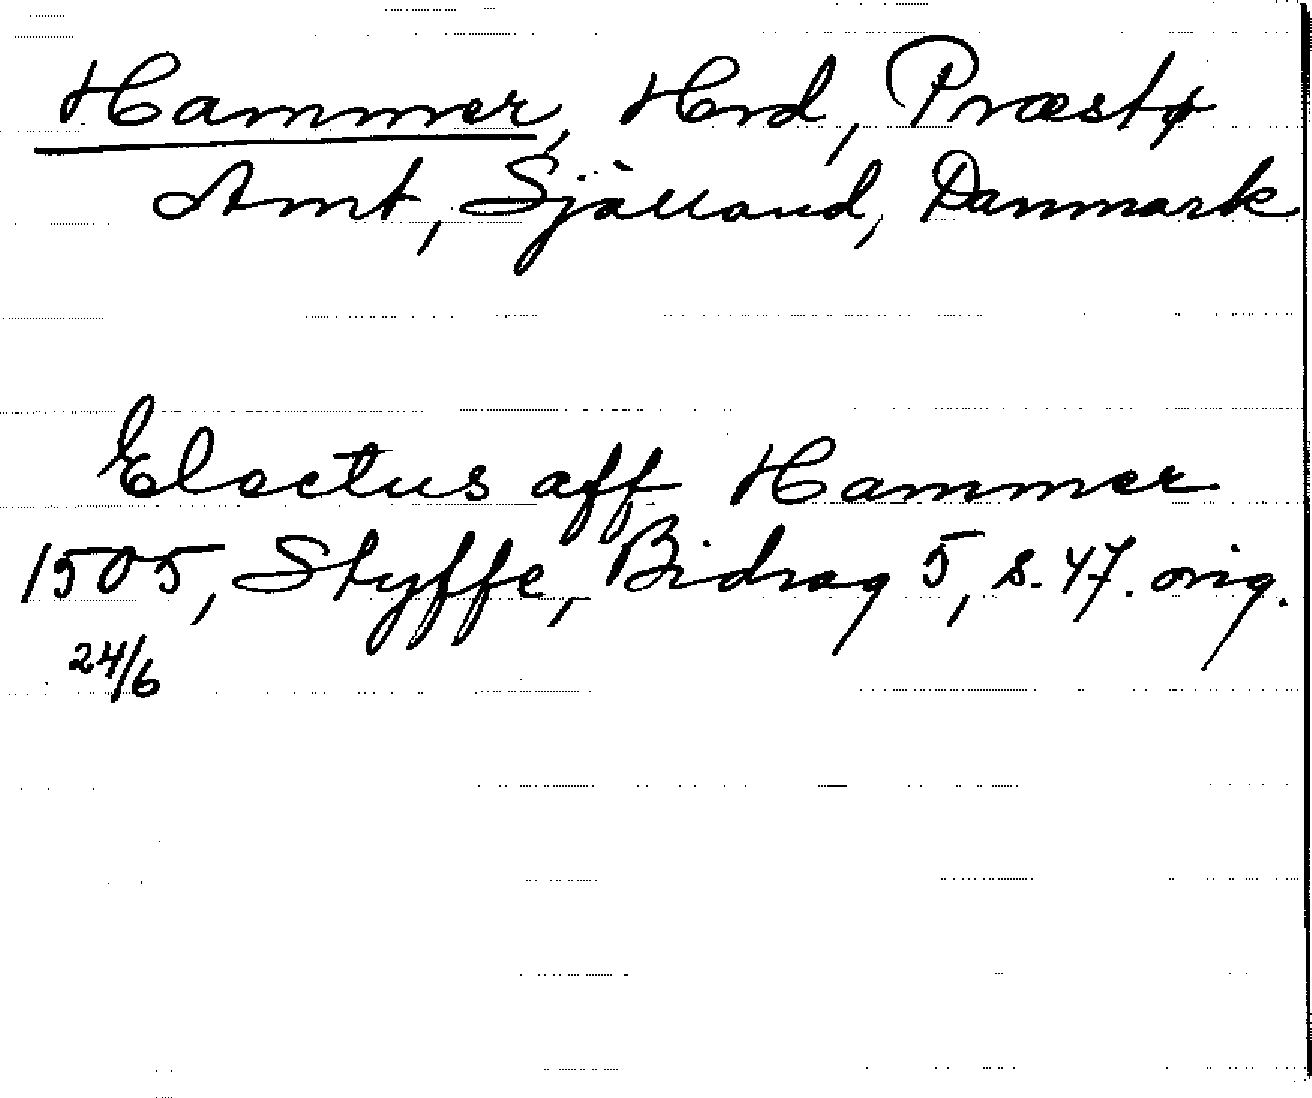 Hammer, Hrd, Præstø
Amt, Själland, Danmark
Electus aff Hammer
1505, Styffe, Bidrag 5, s. 47. orig.
24/6